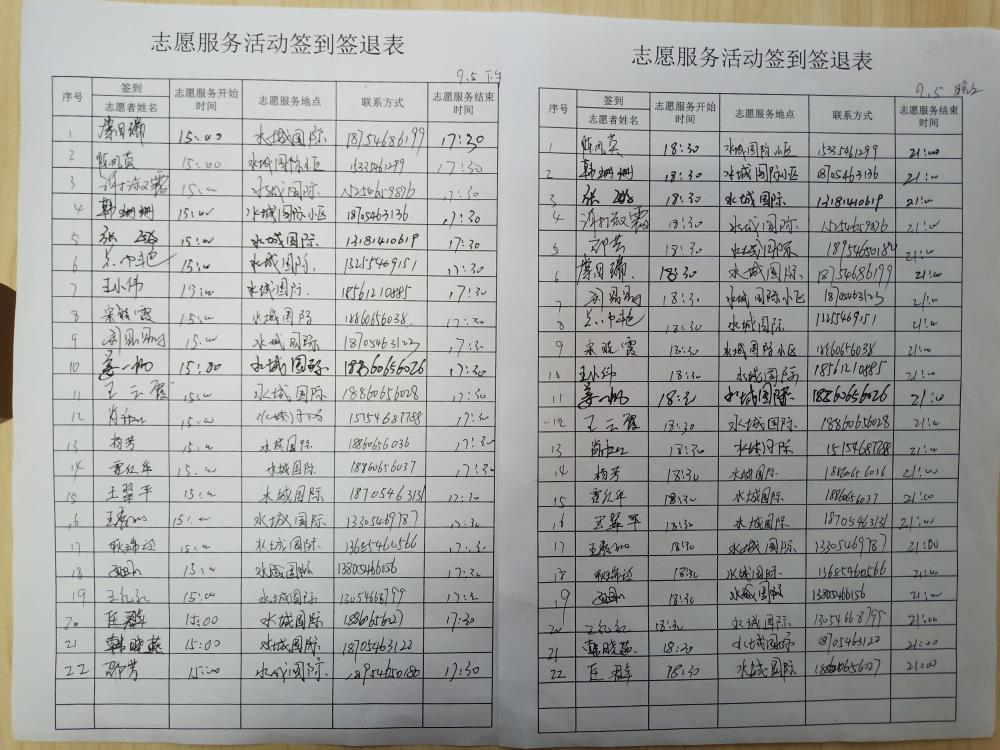 志愿服务活动签到签退表
9.5 下午
序号 签到 志愿者姓名 志愿服务开始时间 志愿服务地点 联系方式 志愿服务结束时间
1 15:00 水城国际 18754686199 17:30
2 陈凤英 15:00 水城国际小区 15335461299 17:30
3 15:00 水城国际 15254659876 17:30
4 韩珊珊 15:00 水城国际小区 18705463136 17:30
5 张 15:00 水城国际 13181410619 17:30
6 15:00 水城国际 13255469151 17:30
7 王小伟 15:00 水城国际 18561210885 17:30
8 宋晓霞 15:00 水城国际 18860656038 17:30
9 15:00 水城国际 18705463123 17:30
10 姜一帆 15:00 水城国际 18860656026 17:30
11 王云霞 15:00 水城国际 18860656028 17:30
12 15:00 水城国际 15154687788 17:30
13 杨芳 15:00 水城国际 18860656036 17:30
14 15:00 水城国际 18860656037 17:30
15 王翠平 15:00 水城国际 18705463131 17:30
16 15:00 水城国际 13305469787 17:30
17 15:00 水城国际 13685460566 17:30
18 15:00 水城国际 13805466156 17:30
19 王红红 15:00 水城国际 13054668799 17:30
20 15:00 水城国际 17:30
21 韩晓燕 15:00 水城国际 18705463122
22 邵芳 15:00 水城国际 17:30
志愿服务活动签到签退表
9.5 晚上
序号 签到 志愿者姓名 志愿服务开始时间 志愿服务地点 联系方式 志愿服务结束时间
1 陈凤英 18:30 水城国际小区 15335461299 21:00
2 韩珊珊 18:30 水城国际小区 18705463136 21:00
3 张 18:30 水城国际 13181410619 21:00
4 18:30 水城国际 15254659876 21:00
5 邵芳 18:30 水城国际 21:00
6 18:30 水城国际 18754686199 21:00
7 18:30 水城国际小区 18705463123 21:00
8 18:30 水城国际 13255469151 21:00
9 宋晓霞 18:30 水城国际小区 18860656038 21:00
10 王小伟 18:30 水城国际 18561210885 21:00
11 姜一帆 18:30 水城国际 18860656026 21:00
12 王云霞 18:30 水城国际 18860656028 21:00
13 18:30 水城国际 15154687788 21:00
14 杨芳 18:30 水城国际 18860656036 21:00
15 18:30 水城国际 18860656037 21:00
16 王翠平 18:30 水城国际 18705463131 21:00
17 18:30 水城国际 13305469787 21:00
18 18:30 水城国际 13685460566 21:00
19 18:30 水城国际 13805466156 21:00
20 王红红 18:30 水城国际 13054668799 21:00
21 韩晓燕 18:30 水城国际 18705463122 21:00
22 18:30 水城国际 18860656027 21:00